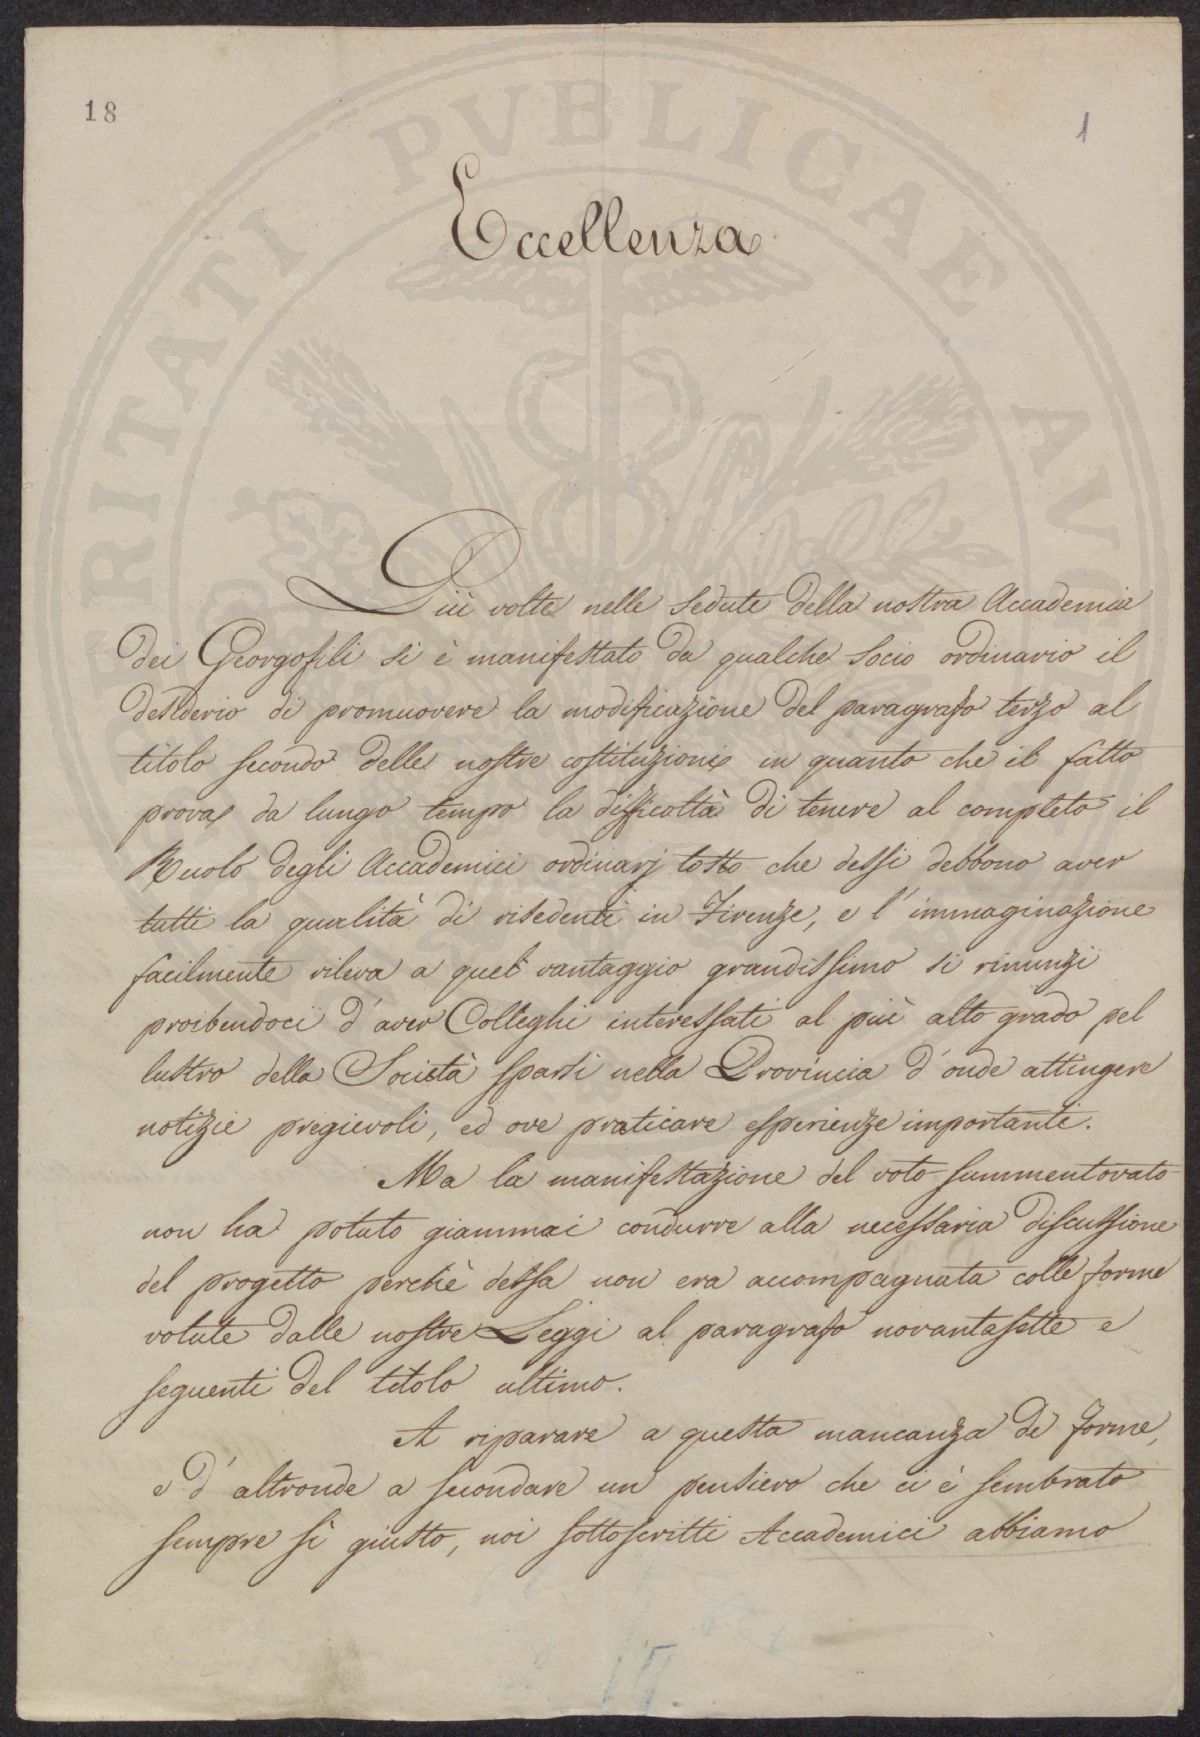 18
1
Eccellenza
Più volte nelle sedute della nostra Accademia
dei Georgofili si è manifestato da qualche Socio ordinario il
desiderio di promuovere la modificazione del paragrafo terzo al
titolo secondo delle nostre costituzioni in quanto che il fatto
prova da lungo tempo la difficoltà di tenere al completo il
Ruolo degli Accademici ordinarj tosto che dessi debbono aver
tutti la qualità di risedenti in Firenze, e l'immaginazione
facilmente rileva a quel vantaggio grandissimo si rinunzi
proibendoci d'aver Colleghi interessati al più alto grado pel
lustro della Società sparsi nella Provincia d'onde attingere
notizie pregievoli, ed ove praticare esperienze importanti.
Ma la manifestazione del voto summentovato
non ha potuto giammai condurre alla necessaria discussione
del progetto perchè dessa non era accompagnata colle forme
volute dalle nostre Leggi al paragrafo novantasette e
seguenti del titolo ultimo.
A riparare a questa mancanza di forme,
e d'altronde a secondare un pensiero che ci è sembrato
sempre sì giusto, noi sottoscritti Accademici abbiamo
PVBLICAE